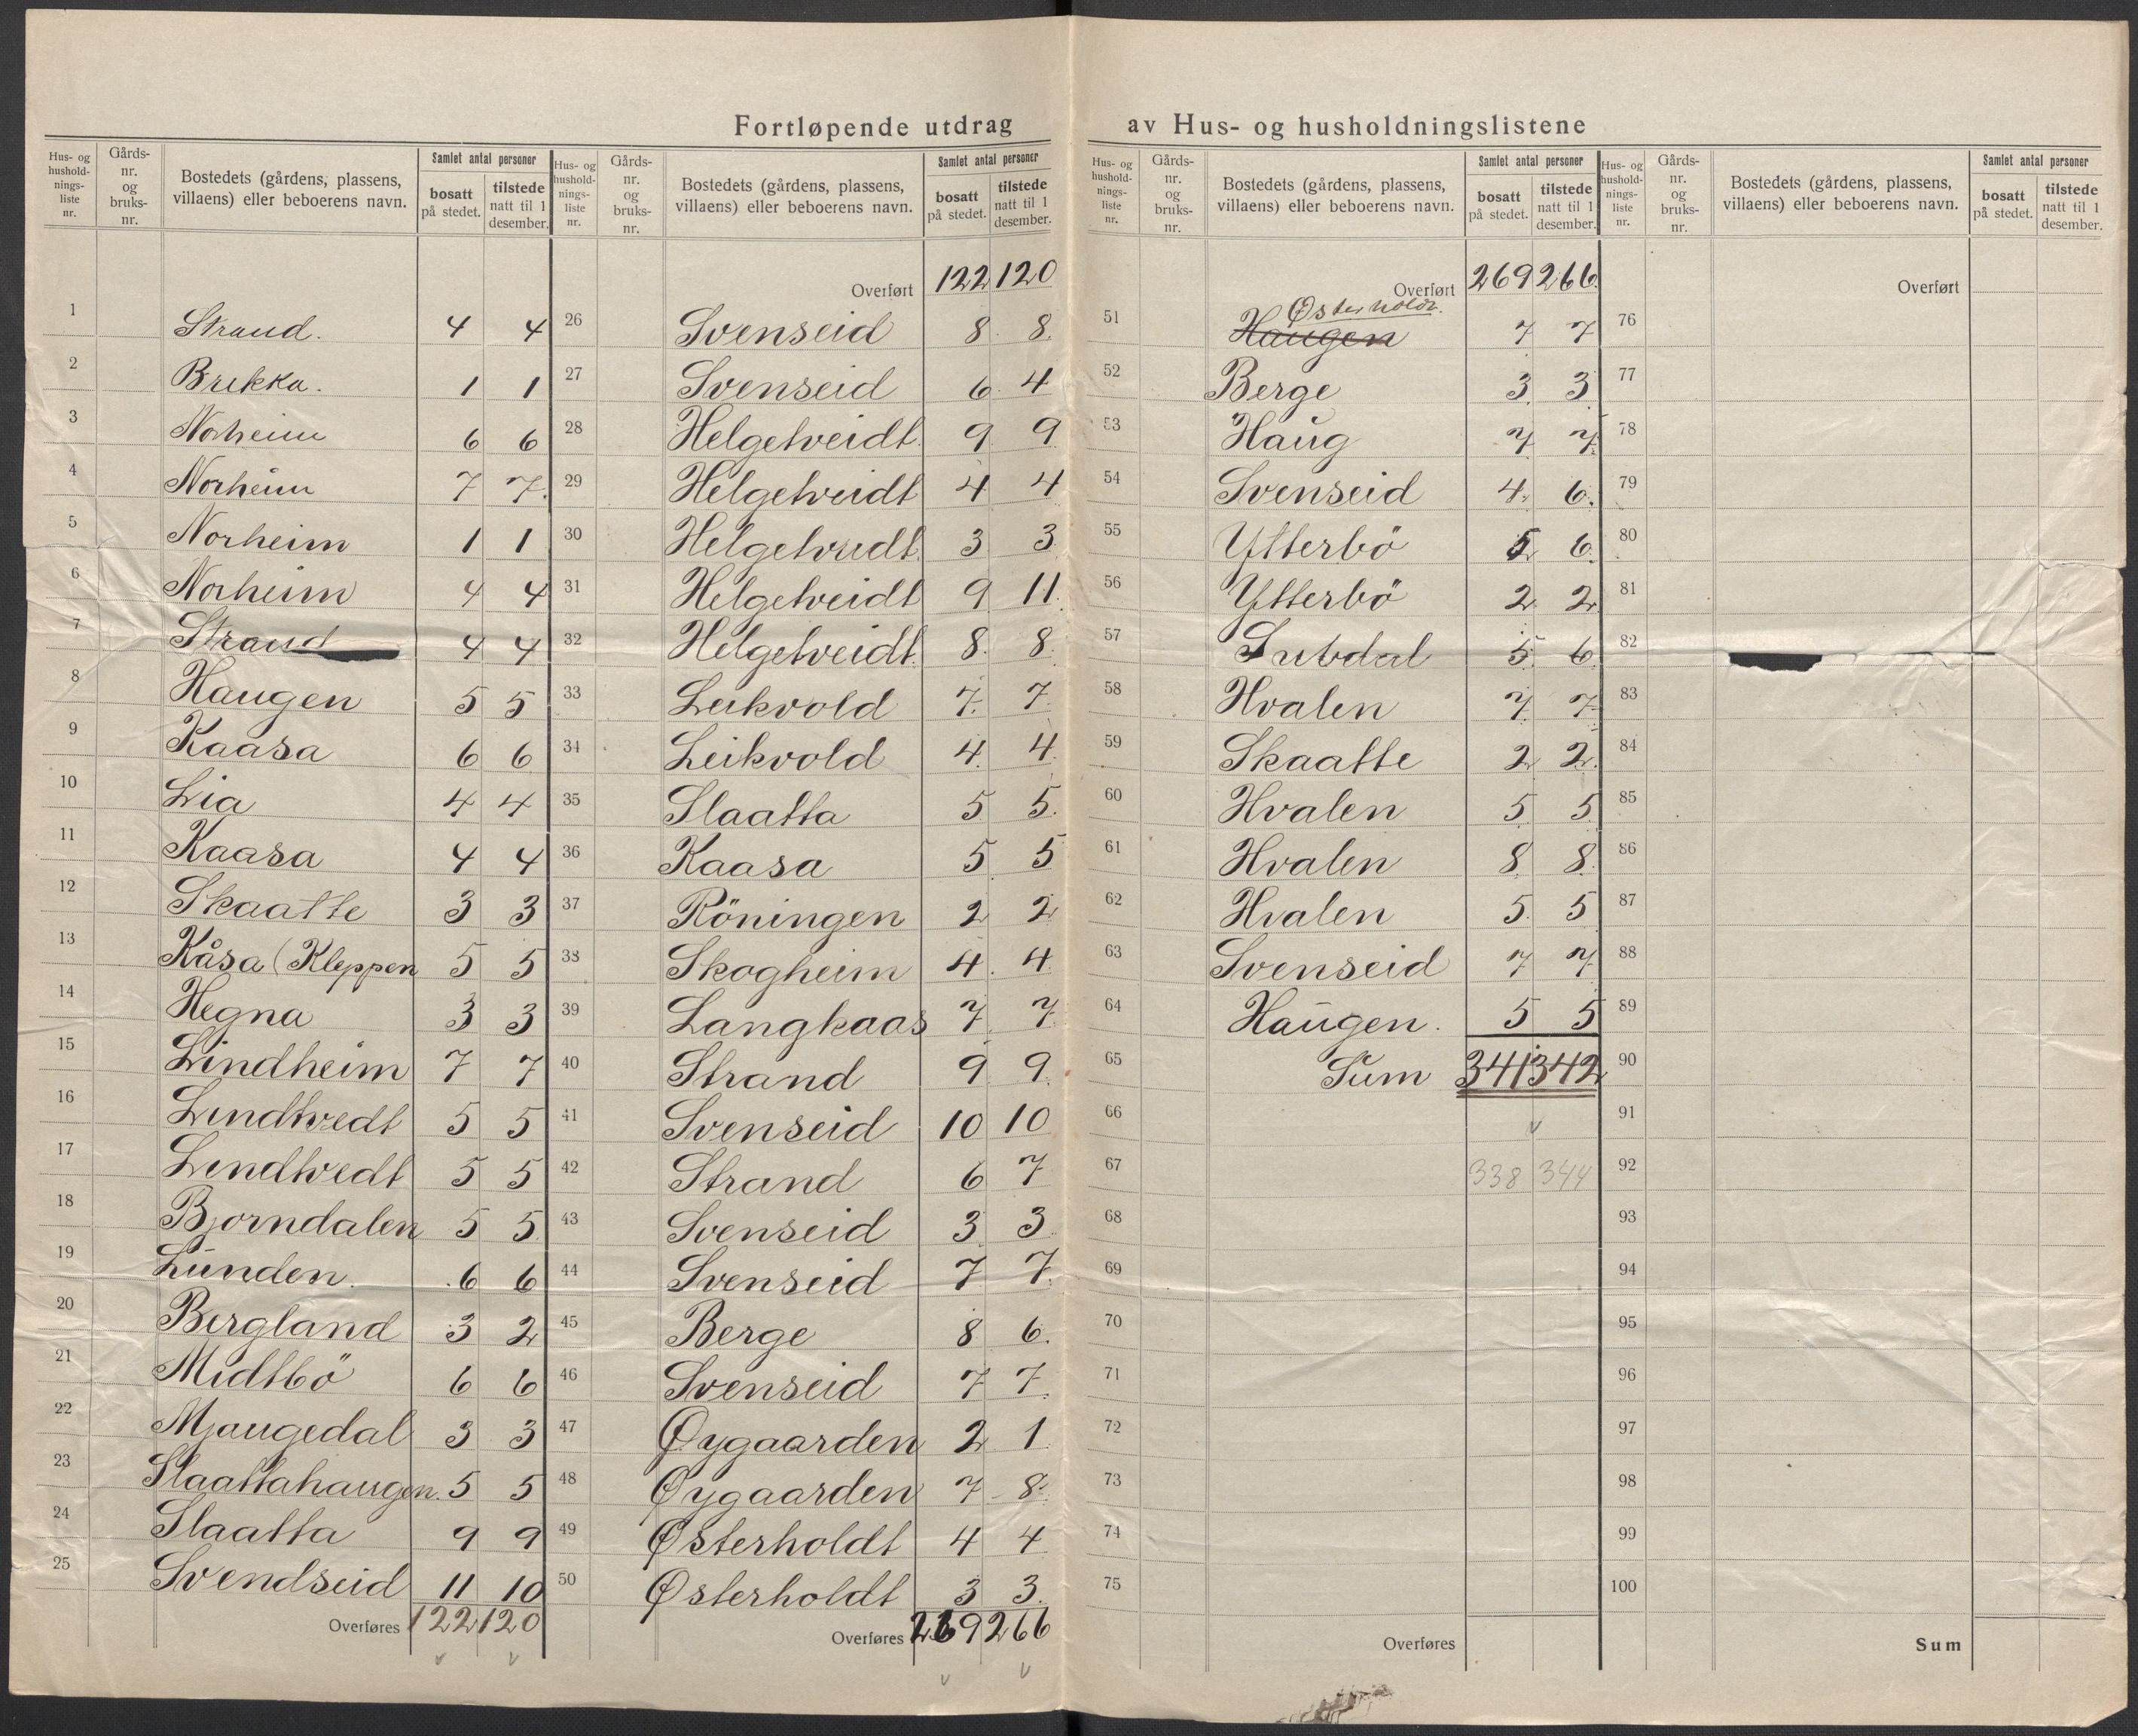 Fortløpende utdrag av Hus- og husholdningslistene
Hus- og hushold-nings-liste nr. Gårds-nr. og bruks-nr. Bostedets (gårdens, plassens, villaens) eller beboerens navn. Samlet antal personer bosatt på stedet. tilstede natt til 1 desember.
1 Strand. 4 4
2 Brekka. 1 1
3 Norheim 6 6
4 Norheim 7 7.
5 Norheim 1 1
6 Norheim 4 4
7 Strand 4 4
8 Haugen 5 5
9 Kaasa 6 6
10 Lia 4 4
11 Kaasa 4 4
12 Skaatte 3 3
13 Kåsa (Kleppen 5 5
14 Hegna 3 3
15 Lindheim 7 7
16 Lindtvedt 5 5
17 Lindtvedt 5 5
18 Bjorndalen 5 5
19 Lunden. 6 6
20 Bergland 3 2
21 Midtbö 6 6
22 Mjaugedal 3 3
23 Slaattahaugen. 5 5
24 Slaatta 9 9
25 Svendseid 11 10
Overføres 122 120
Hus- og hushold-nings-liste nr. Gårds-nr. og bruks-nr. Bostedets (gårdens, plassens, villaens) eller beboerens navn. Samlet antal personer bosatt på stedet. tilstede natt til 1 desember.
Overført 122 120
26 Svenseid 8 8.
27 Svenseid 6 4
28 Helgetveidt 9 9
29 Helgetveidt 4 4
30 Helgetveidt 3 3
31 Helgetveidt 9 11.
32 Helgetveidt 8. 8.
33 Leikvold 7. 7
34 Leikvold 4. 4.
35 Slaatta 5 5.
36 Kaasa 5 5
37 Röningen 2 2
38 Skogheim 4. 4
39 Langkaas 7 7
40 Strand 9 9.
41 Svenseid 10 10
42 Strand 6 7
43 Svenseid 3 3.
44 Svenseid 7 7.
45 Berge 8 6.
46 Svenseid 7 7.
47 Øygaarden 2 1
48 Øygaarden 7 8.
49 Østerholdt 4 4
50 Østerholdt 3 3.
Overføres 269 266
Hus- og hushold-nings-liste nr. Gårds-nr. og bruks-nr. Bostedets (gårdens, plassens, villaens) eller beboerens navn. Samlet antal personer bosatt på stedet. tilstede natt til 1 desember.
Overført 269 266.
Østerholdt.
51 Haugen 7 7
52 Berge 3 3
53 Haug 7 7.
54 Svenseid 4. 6.
55 Ytterbö 5 6.
56 Ytterbö 2. 2.
57 5. 6.
58 Hvalen 7. 7.
59 Skaatte 2 2.
60 Hvalen 5 5
61 Hvalen 8 8.
62 Hvalen 5. 5
63 Svenseid 7 7
64 Haugen. 5 5
65 Sum 341 342
66
67 338 344
68
69
70
71
72
73
74
75
Overføres
Hus- og hushold-nings-liste nr. Gårds-nr. og bruks-nr. Bostedets (gårdens, plassens, villaens) eller beboerens navn. Samlet antal personer bosatt på stedet. tilstede natt til 1 desember.
Overført
76
77
78
79
80
81
82
83
84
85
86
87
88
89
90
91
92
93
94
95
96
97
98
99
100
Sum